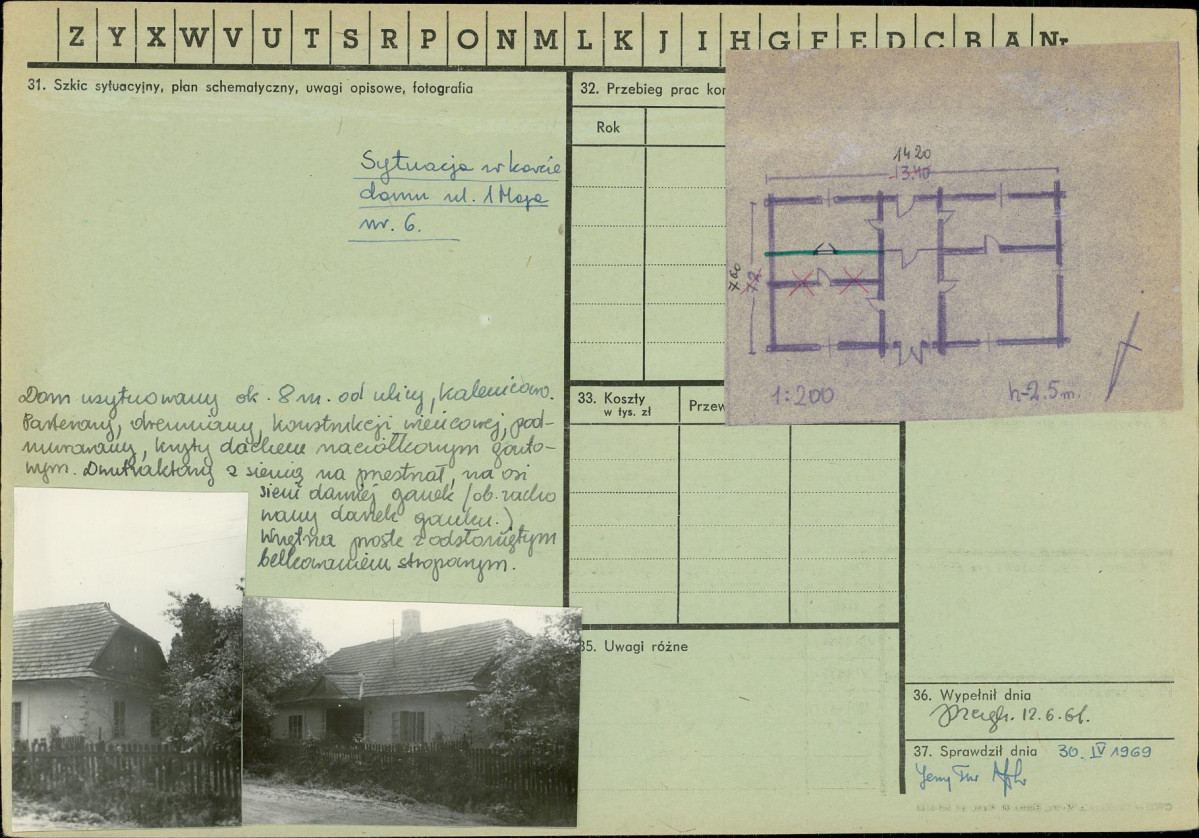 Z Y X W V U T S R P O N M L K J I H G F E D C B A Nr
31. Szkic sytuacyjny, plan schematyczny, uwagi opisowe, fotografia
Sytuacja w karcie
domu ul. 1 Maja
nr. 6.
Dom usytuowany ok. 8 m. od ulicy, kalenicowo.
Parterowy, drewniany, konstrukcji wieńcowej, pod-
murowany, kryty dachem naczółkowym gonto-
wym. Dwutraktowy z sienią na przestrzał, na osi
sieni dawniej ganek /ob. zacho
wany daszek ganku.)
Wnętrza proste z odsłoniętym
belkowaniem stropowym.
32. Przebieg prac kon
Rok
33. Koszty
w tys. zł
Przew
35. Uwagi różne
1420
13.40
760
7.2
1:200
h-2.5 m.
36. Wypełnił dnia
12.6.61.
37. Sprawdził dnia 30. IV 1969